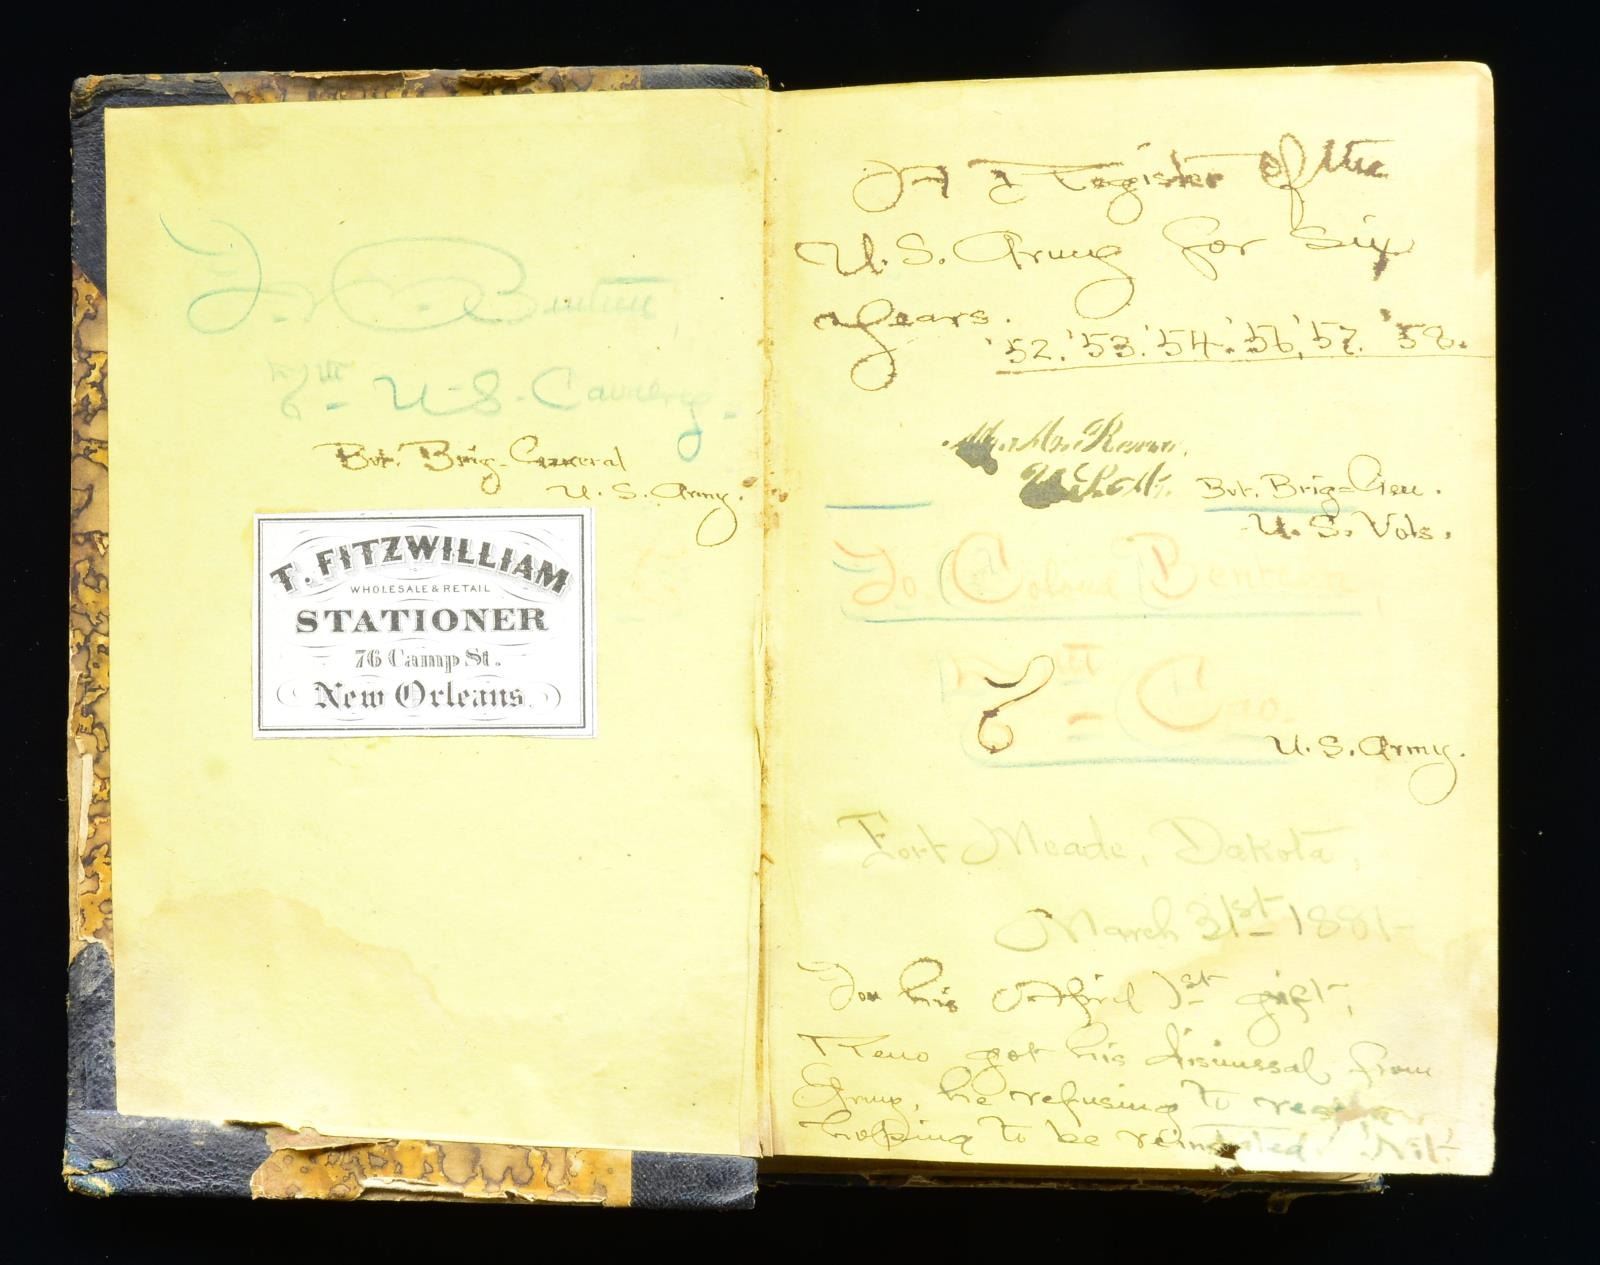 F. W. Benteen,
7th U.S. Cavalry.
Bvt. Brig-General
U. S. Army.
T. FITZWILLIAM
WHOLESALE & RETAIL
STATIONER
76 Camp St.
New Orleans.
A Register of the
U. S. Army for Six
Years.
'52. '53. '54. '56, '57. '58.
M. A. Reno,
U.S.A. Bvt. Brig-Gen.
U. S. Vols.
To Colonel Benteen,
7th Cav.
U. S. Army.
Fort Meade, Dakota,
March 31st 1881-
For his 1st gift,
Reno got his dismissal from
Army, he refusing to
hoping to be reinstated! Nit.